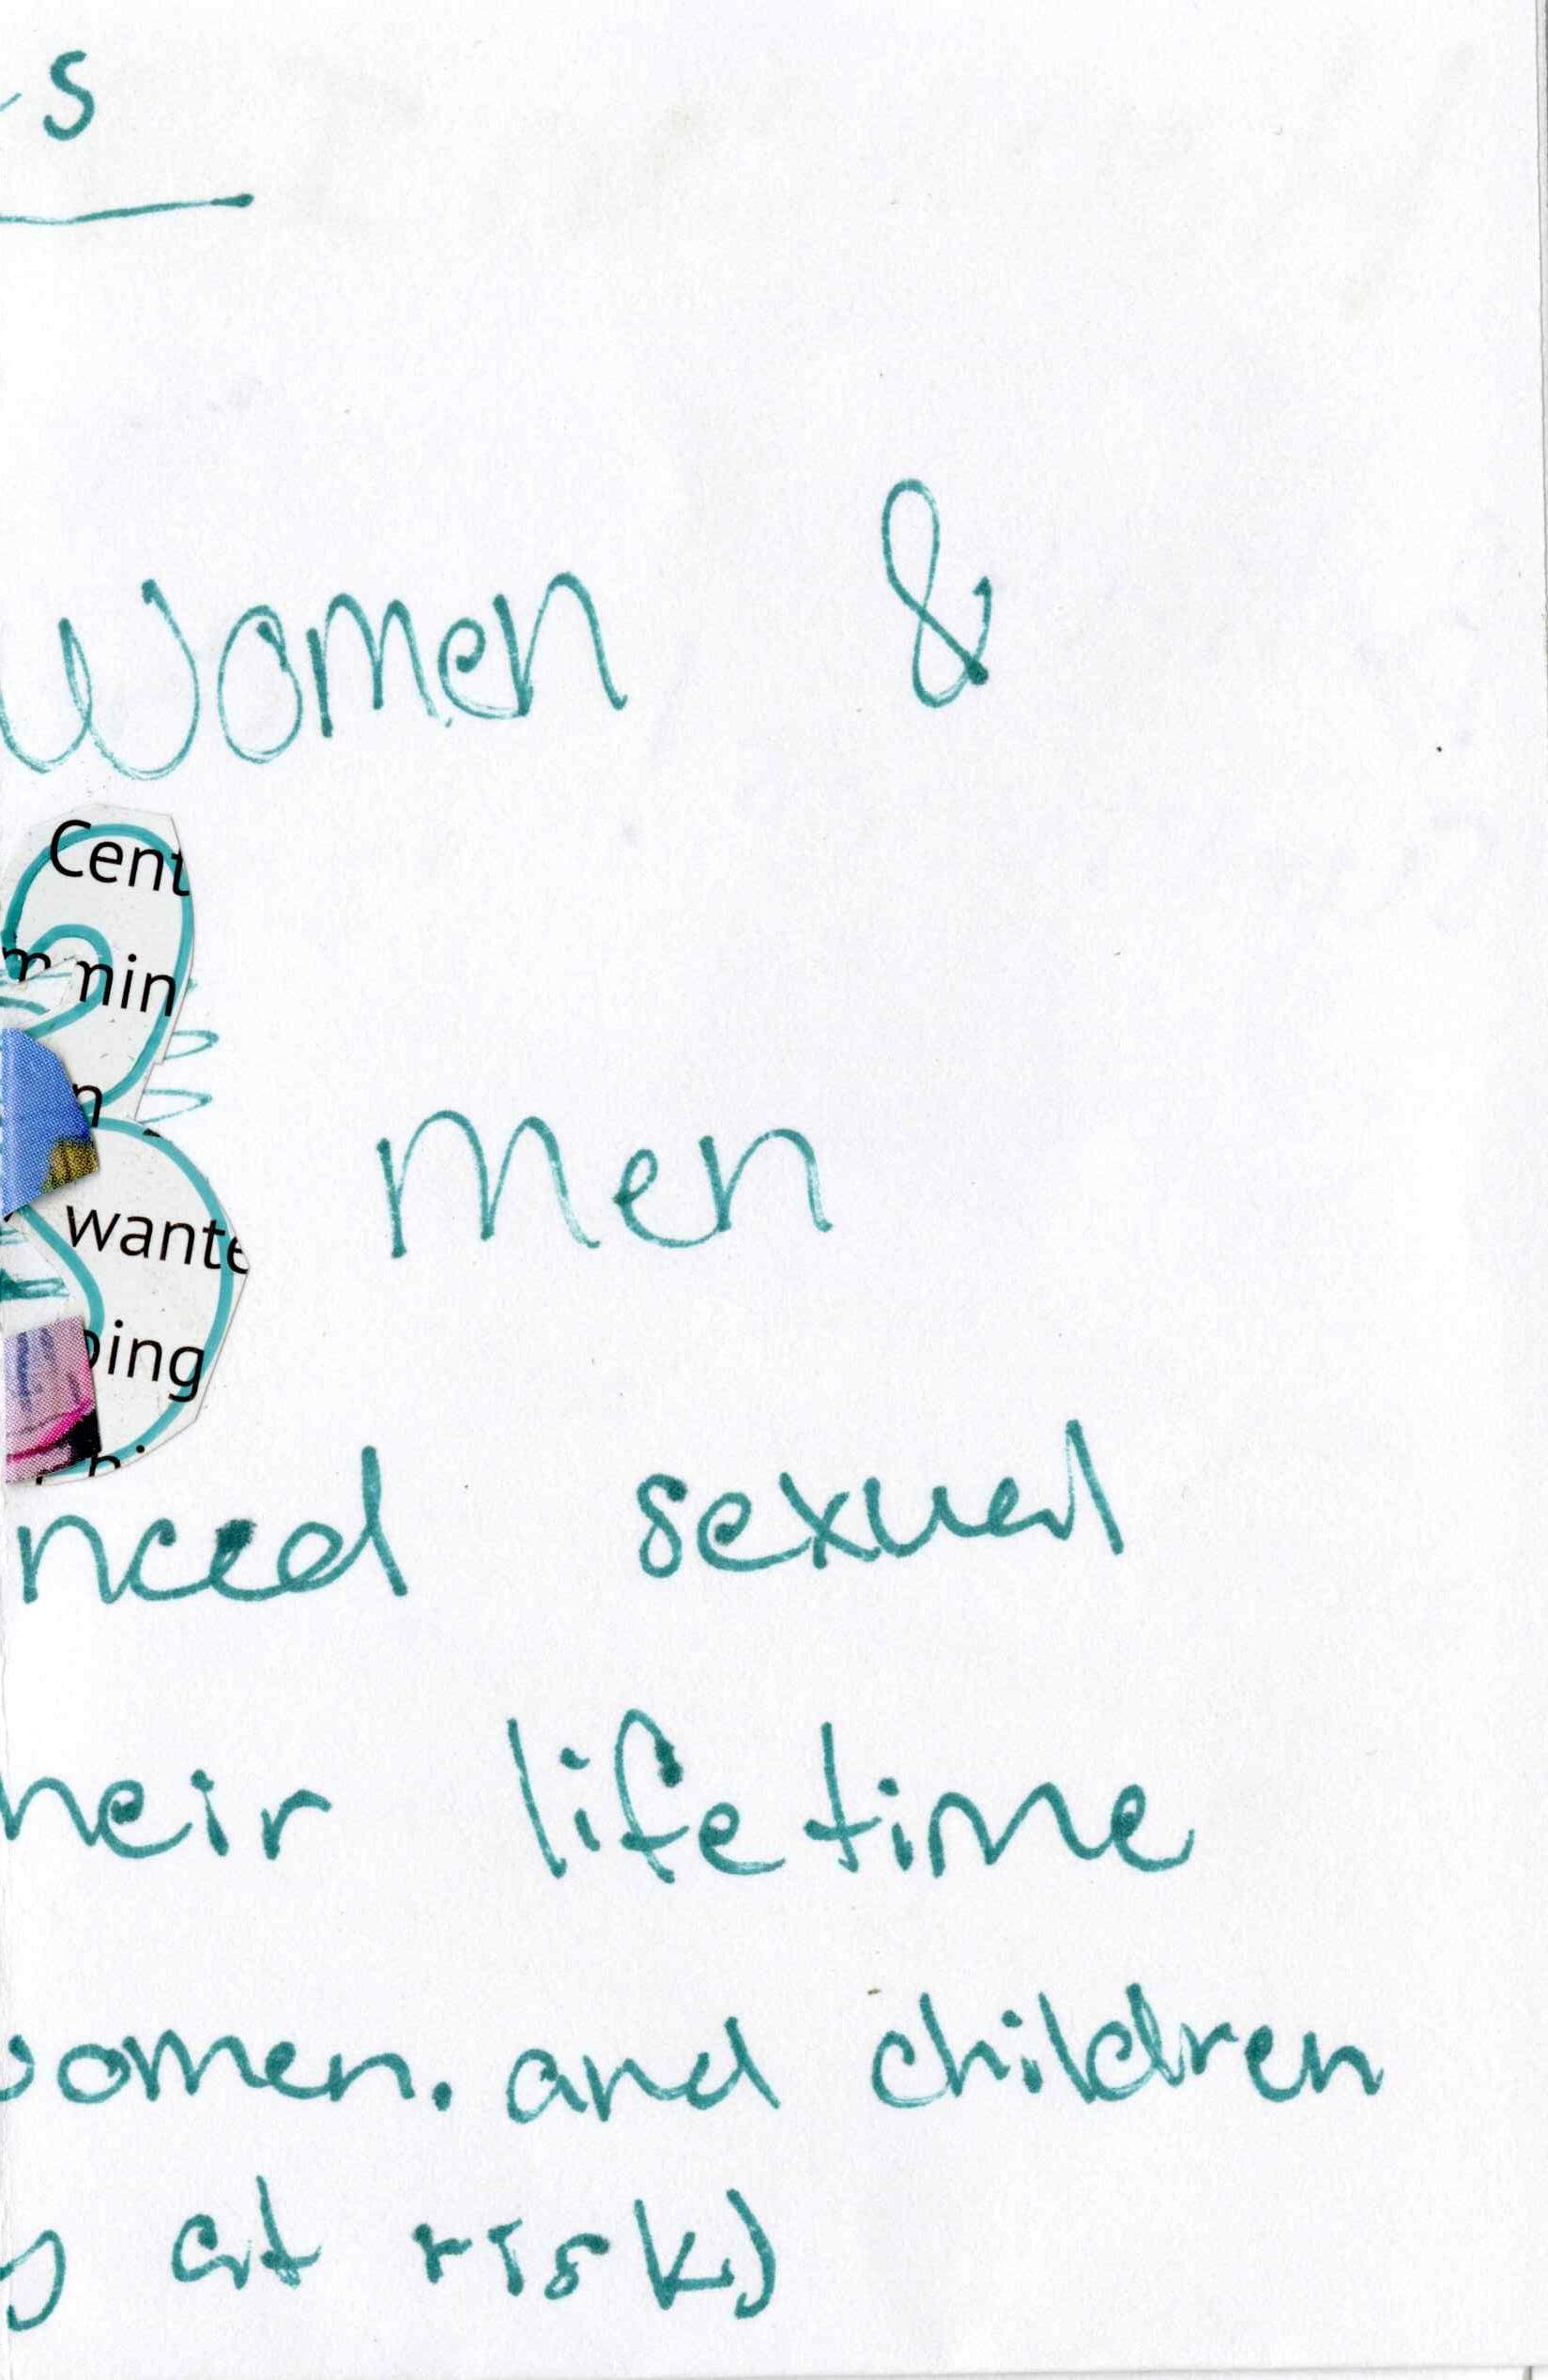 s
Women &
Cent
nin
n
men
wante
ping
need sexual
heir lifetime
omen. and children
y at risk)